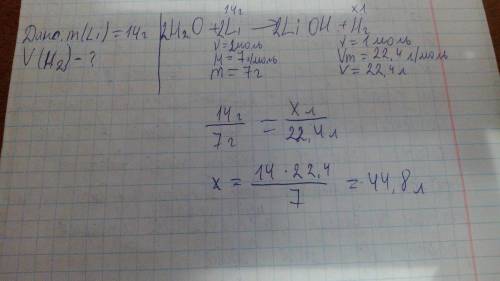 14г х л
Дано: m(Li)=14г 2H₂O + 2Li → 2LiOH + H₂
V(H₂) - ? ν=2моль ν=1моль
M=7г/моль Vm=22,4л/моль
m=7г V=22,4л
14г/7г = Xл/22,4л
x = 14·22,4/7 = 44,8л